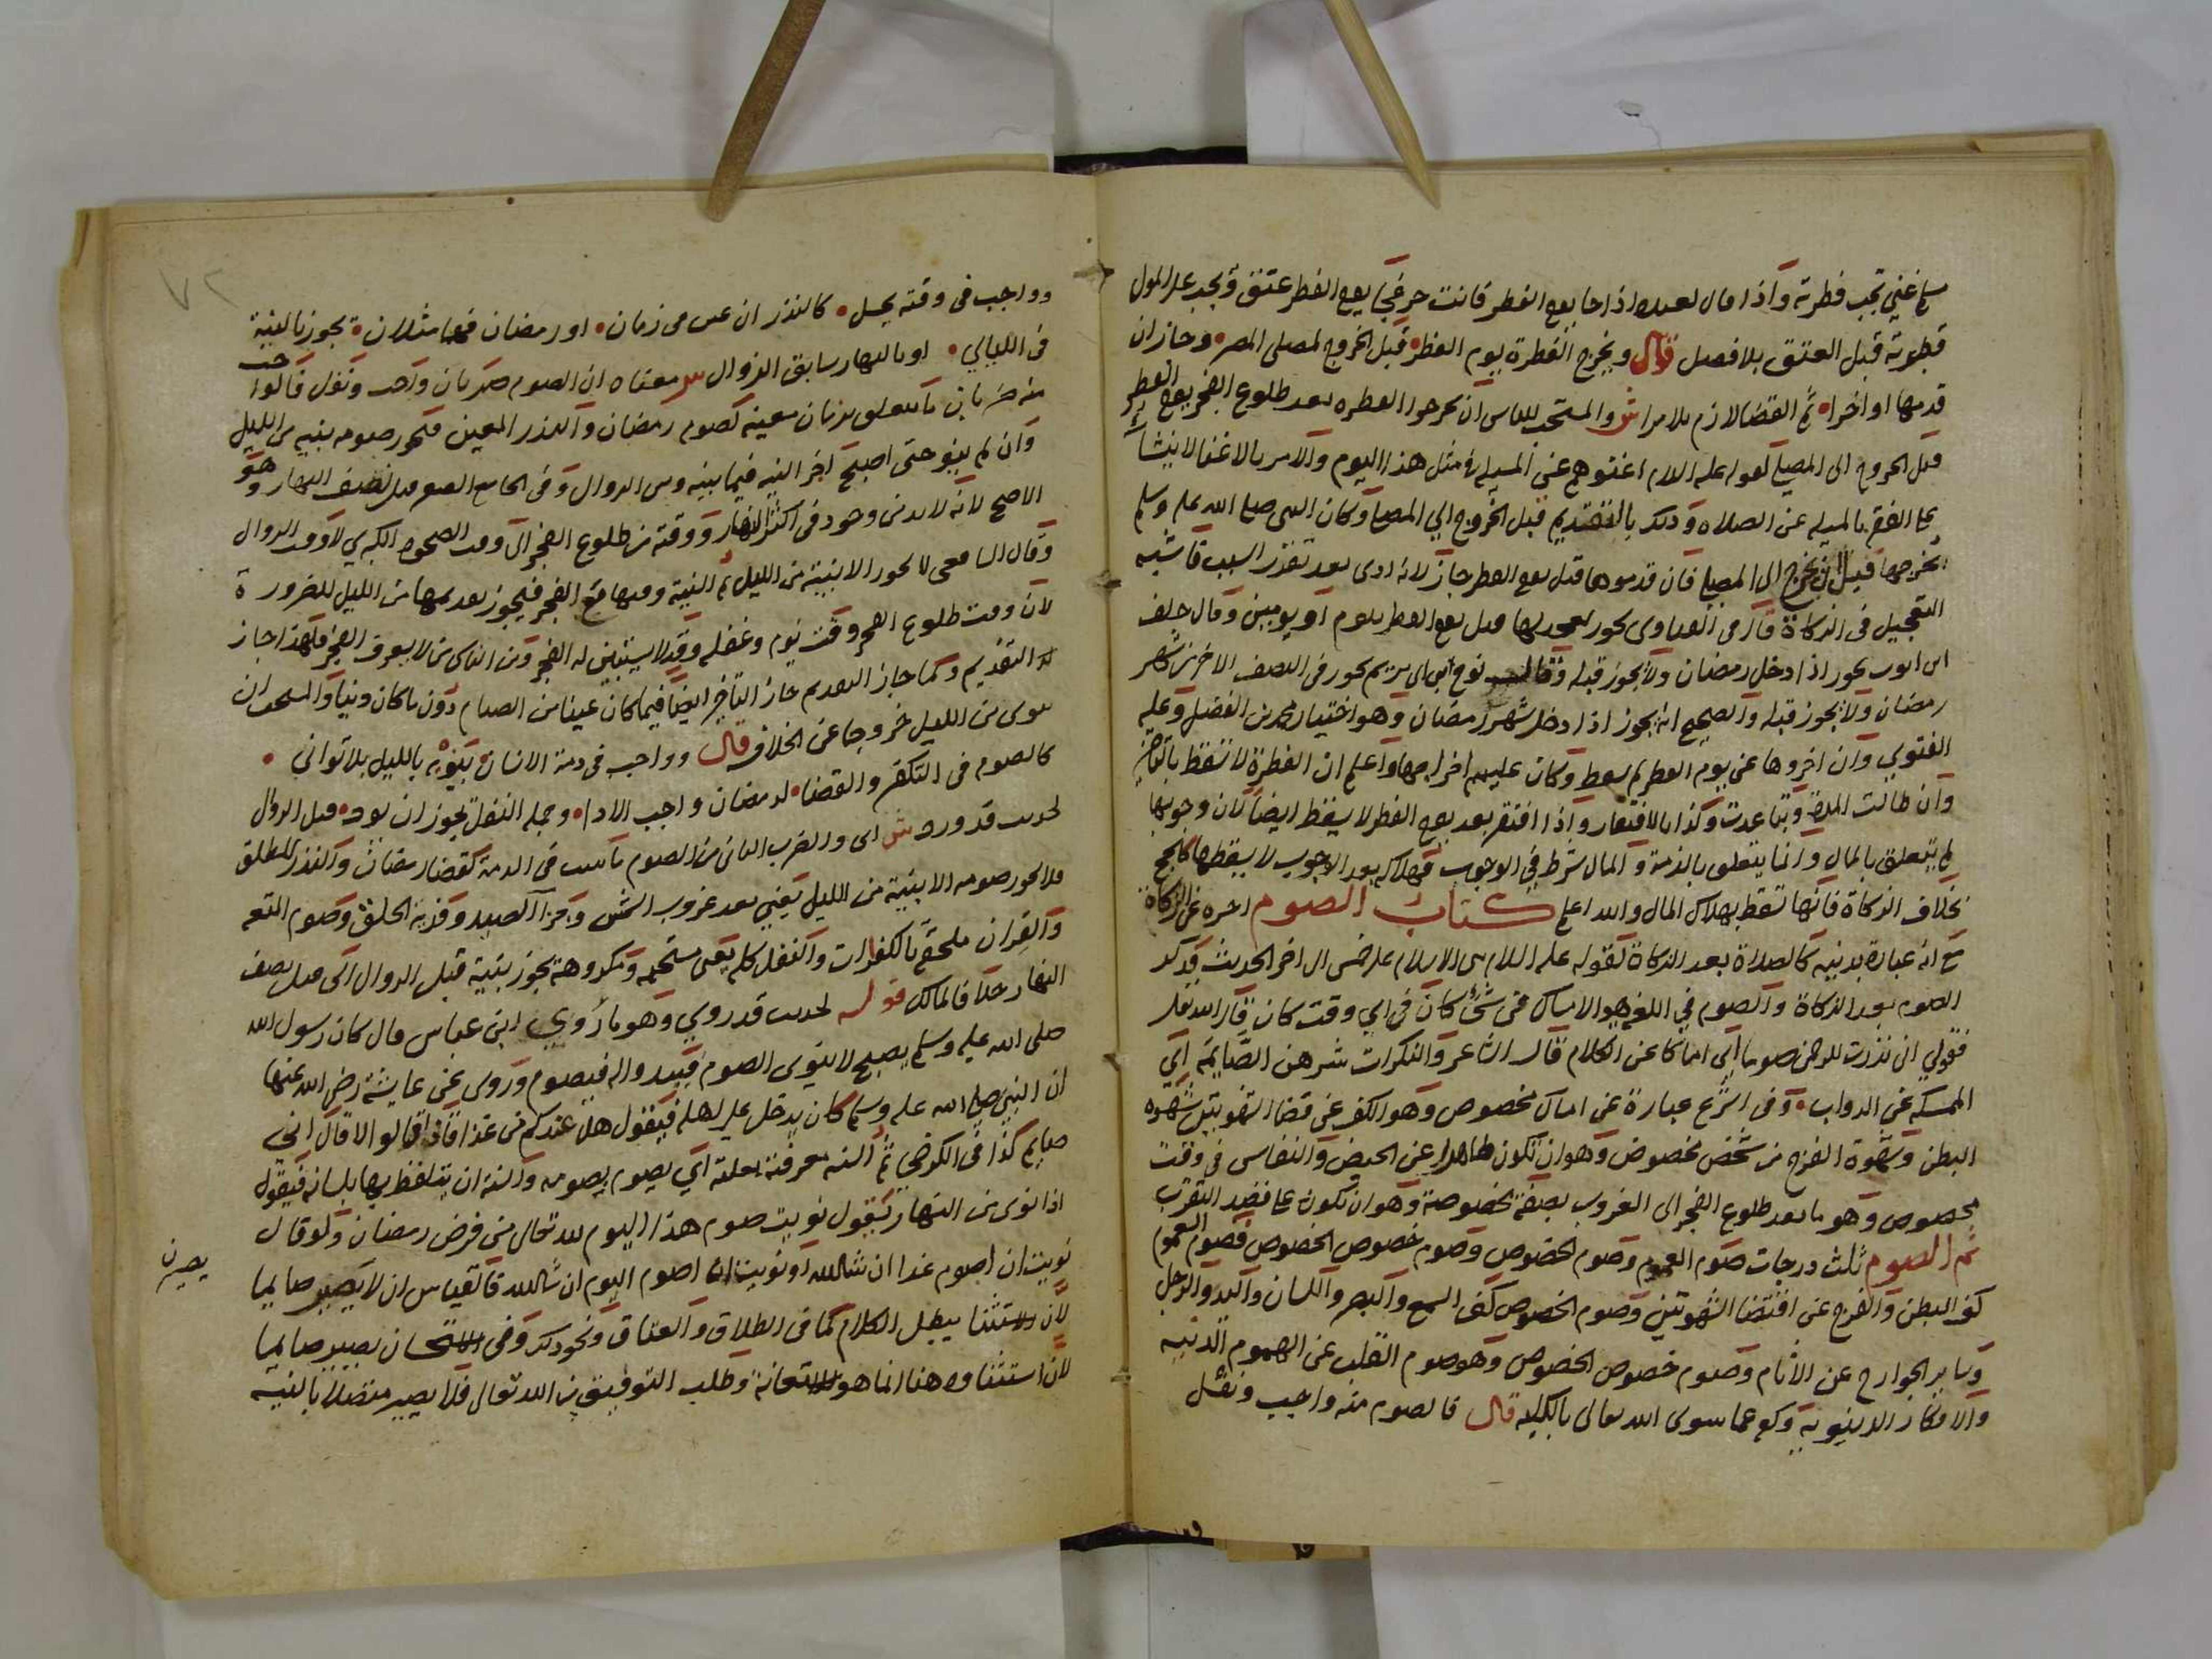 غني تجب فطرته واذا قال لعبده اذا جا يوم الفطر فانت حر فجا يوم الفطر عتق وتجب على المولى
فطرته قبل العتق بلا فصل قال ويخرج الفطرة يوم الفطر قبل الخروج لمصلى المصر وجاز ان
قدمها او اخرا ثم القضا لازم بلا مرا ش والمستحب للناس ان يخرجوا الفطره بعد طلوع الفجر يوم الفطر
قبل الخروج الى المصلى لقوله عليه السلام اغنوهم عن المسيلة في مثل هذا اليوم والامر بالاغنا لا يتشا
غل الفقير بالمسيله عن الصلاه وذلك بالتقديم قبل الخروج الي المصلى وكان النبي صلى الله عليه وسلم
يخرجها قبل ان يخرج الى المصلى فان قدموها قبل يوم الفطر جاز لانه ادى بعد تقرر السبب فاشبه
التعجيل في الزكاة قال في الفتاوى يجوز تعجيلها قبل يوم الفطر بيوم او يومين وقال خلف
ابن ايوب يجوز اذا دخل رمضان ولا يجوز قبله وقال نوح ابن ابي مريم يجوز في النصف الاخر من شهر
رمضان ولا يجوز قبله والصحيح انه يجوز اذا دخل شهر رمضان وهو اختيار محمد بن الفضل وعليه
الفتوي وان اخروها عن يوم الفطر لم يسقط وكان عليهم اخراجها واعلم ان الفطرة لا تسقط بالتاخير
وان طالت المدة وتباعدت وكذا بالافتقار واذا افتقر بعد يوم الفطر لا يسقط ايضا لان وجوبها
لم يتعلق بالمال وانما يتعلق بالذمة والمال شرط في الوجوب فهلاكه بعد الوجوب لا يسقطها كالحج
بخلاف الزكاة فانها تسقط بهلاك المال والله اعلم كتاب الصوم اخره عن الزكاة
مع انه عبادة بدنيه كالصلاة بعد الزكاة لقوله عليه السلام بني الاسلام على خمس الى اخر الحديث فذكر
الصوم بعد الزكاة والصوم في اللغة هو الامساك عن شئ كان في اي وقت كان قال الله تعلى
فقولي اني نذرت للرحمن صوما اي امساكا عن الكلام قال الشاعر والبكرات شرهن الصايمة اي
الممسكه عن الدواب وفي الشرع عبارة عن امساك مخصوص وهو الكف عن قضا الشهوتين شهوه
البطن وشهوة الفرج من شخص مخصوص وهو ان تكون طاهرا عن الحيض والنفاس في وقت
مخصوص وهو ما بعد طلوع الفجر الى الغروب بصفة مخصوصة وهو ان تكون على قصد التقرب
ثم الصوم ثلث درجات صوم العموم وصوم الخصوص وصوم خصوص الخصوص فصوم العموم
كف البطن والفرج عن اقتضا الشهوتين وصوم الخصوص كف السمع والبصر واللسان واليد والرجل
وساير الجوارح عن الاثام وصوم خصوص الخصوص وهو صوم القلب عن الهموم الدنيه
والافكار الدنيويه وكفه عما سوى الله تعالى بالكليه قال فالصوم منه واجب ونفل
٧٢
وواجب في وقته يحل كالنذر ان عين في زمان او رمضان يجوز بالنية
في الليالي او بالنهار سابق الزوال ش معناه ان الصوم ضربان واجب ونفل قالوا جب
منه ضربان ما يتعلق بزمان معينه كصوم رمضان والنذر المعين فيجوز صومه بنيه من الليل
وان لم ينو حتى اصبح اجزا النيه فيما بينه وبين الزوال وفي الجامع الصغير قبل نصف النهار وهو
الاصح لانه لا بد من وجود في اكثر النهار ووقته من طلوع الفجر الى وقت الضحوه الكبرى لا وقت الزوال
وقال الشافعي لا يجوز الا بنية من الليل ثم النية وقتها مع الفجر فيجوز تقديمها من الليل للضرورة
لان وقت طلوع الفجر وقت نوم وغفله وقد لا يستبين له الفجر ومن الناس من لا يعرف الفجر فلهذا جاز
له التقديم وكما جاز التقديم جاز التأخير ايضا فيما كان عينا من الصيام دون ما كان دينا والمستحب ان
ينوى من الليل خروجا عن الخلاف قال وواجب في ذمة الانسان ينويه بالليل بلا تواني
كالصوم في التكفير والقضا لرمضان واجب الادا وجملة النفل يجوز ان نوى قبل الزوال
لحديث قد ورد ش اي والضرب الثاني من الصوم ما ثبت في الذمة كقضا رمضان والنذر المطلق
فلا يجوز صومه الا بنية من الليل يعني بعد غروب الشمس وجزا الصيد وفدية الحلق وصوم المتعه
والقران ملحق بالكفارات والنفل كله يعني مستحبه ومكروهة يجوز بنية قبل الزوال اي قبل نصف
النهار خلافا لمالك قوله لحديث قد روي وهو ما روي ابن عباس قال كان رسول الله
صلى الله عليه وسلم يصبح لا ينوى الصوم فيبدو له فيصوم وروى عن عايشة رضي الله عنها
ان النبي صلى الله عليه وسلم كان يدخل على اهله فيقول هل عندكم من غذا فاذا قالوا لا قال اني
صايم كذا في الكرخي ثم النيه معرفته بقلبه اي يصوم يصومه والسنه ان يتلفظ بها بلسانه فيقول
اذا نوى من النهار يقول نويت صوم هذا اليوم لله تعالى من فرض رمضان ولو قال
نويت ان اصوم غدا ان شا الله او نويت ان اصوم اليوم ان شا الله فالقياس ان لا يصير صايما
لان الاستثنا يبطل الكلام كما في الطلاق والعتاق ونحو ذلك وفي الاستحسان يصير صايما
لان استثناوه هنا انما هو للاستعانة وطلب التوفيق من الله تعالى فلا يصير متصلا بالنيه